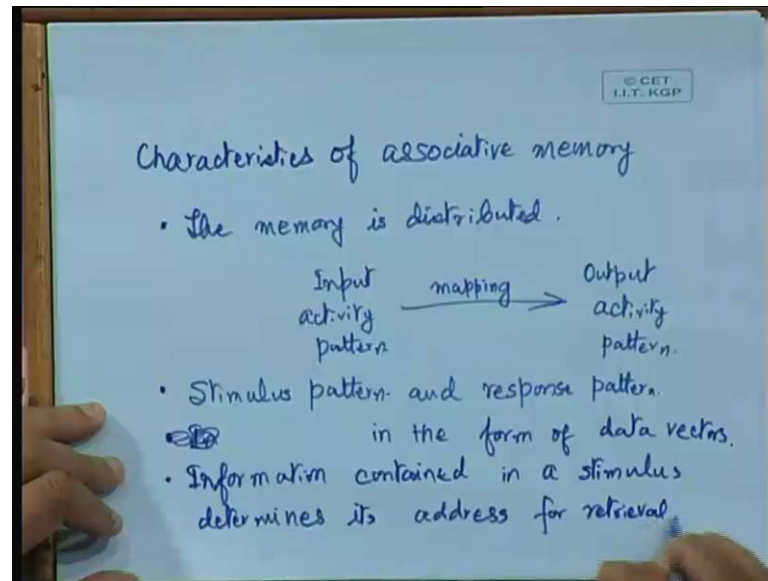 © CET
I.I.T. KGP
Characteristics of associative memory
• The memory is distributed.
Input mapping Output
activity activity
pattern pattern.
• Stimulus pattern and response pattern.
in the form of data vectors.
• Information contained in a stimulus
determines its address for retrieval